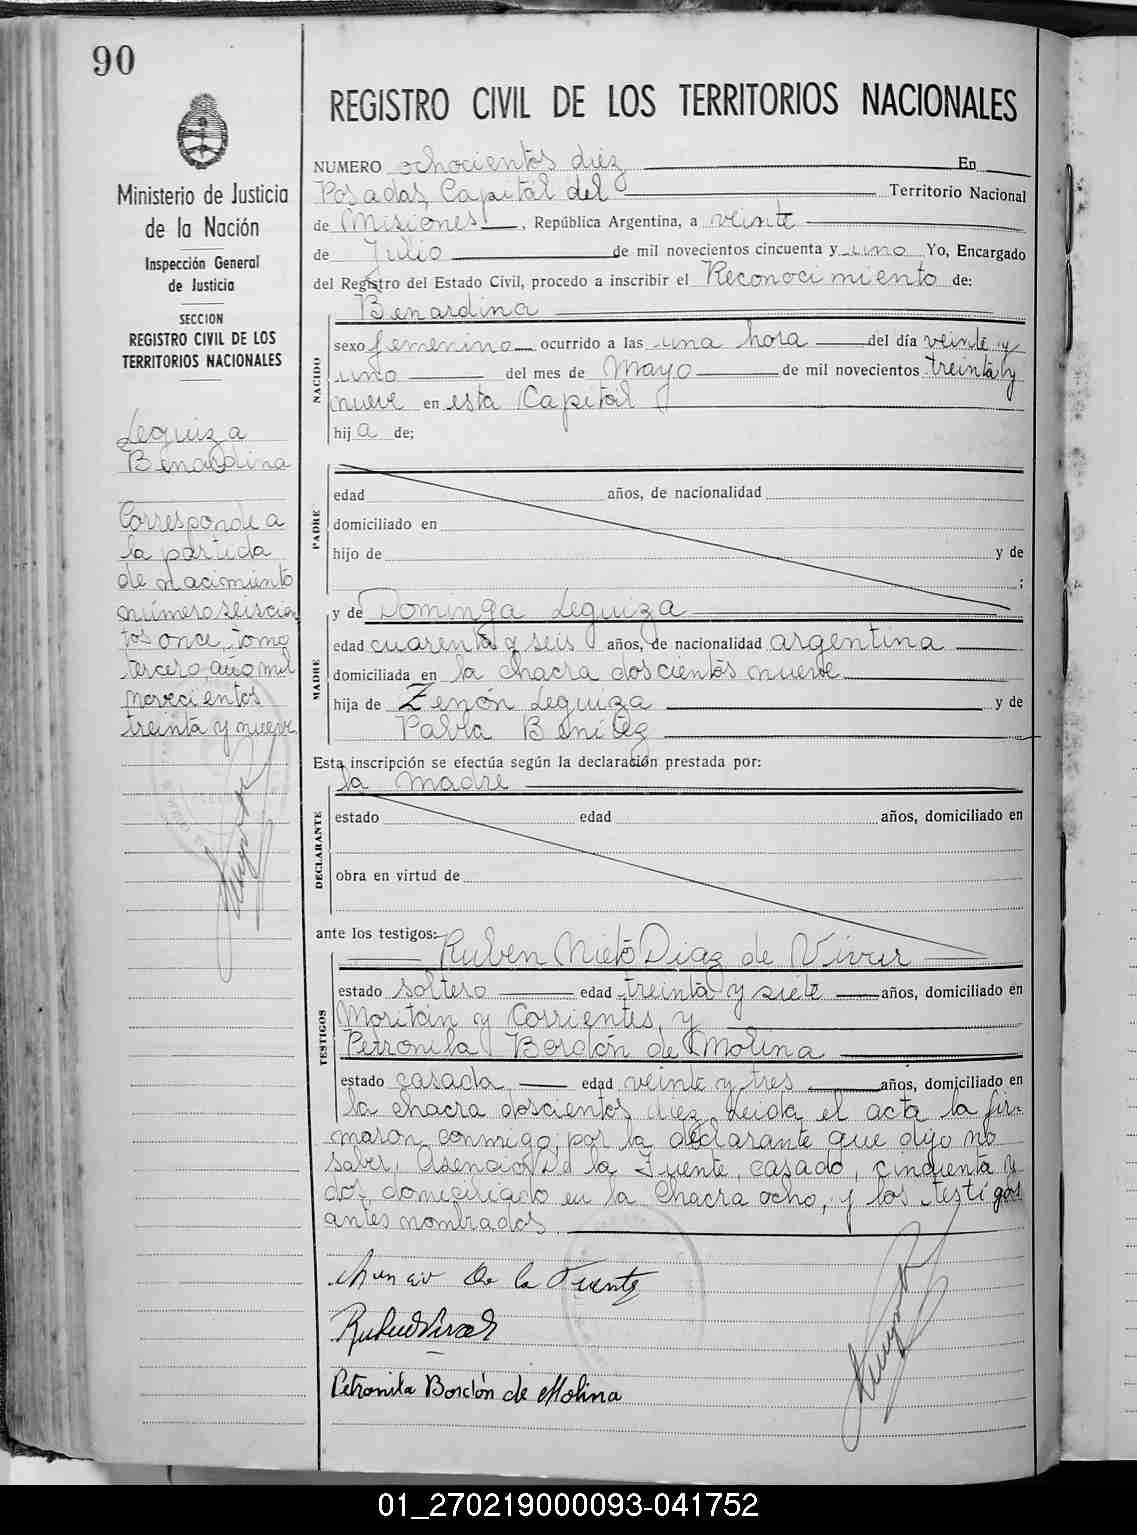 90
Ministerio de Justicia
de la Nación
Inspección General
de Justicia
SECCION
REGISTRO CIVIL DE LOS
TERRITORIOS NACIONALES
Leguiza
Benardina
Corresponde a
la partida
de nacimiento
número seiscien
tos once, tomo
tercero, año mil
novecientos
treinta y nueve
REGISTRO CIVIL DE LOS TERRITORIOS NACIONALES
NUMERO ochocientos diez En
Posadas, Capital del Territorio Nacional
de Misiones, República Argentina, a veinte
de Julio de mil novecientos cincuenta y uno Yo, Encargado
del Registro del Estado Civil, procedo a inscribir el Reconocimiento de:
Benardina
NACIDO
sexo femenino ocurrido a las una hora del día veinte y
uno del mes de Mayo de mil novecientos treinta y
nueve en esta Capital
hija de;
PADRE
edad años, de nacionalidad
domiciliado en
hijo de y de
;
y de Dominga Leguiza
MADRE
edad cuarenta y seis años, de nacionalidad argentina
domiciliada en la chacra doscientos nueve
hija de Zenón Leguiza y de
Pabla Benitez
Esta inscripción se efectúa según la declaración prestada por:
la madre
DECLARANTE
estado edad años, domiciliado en
obra en virtud de
ante los testigos:
Ruben Nieto Diaz de Vivar
TESTIGOS
estado soltero edad treinta y siete años, domiciliado en
Moritán y Corrientes, y
Petronila Bordón de Molina
estado casada edad veinte y tres años, domiciliado en
la chacra doscientos diez. Leida el acta la fir-
maron conmigo, por la declarante que dijo no
saber, De la Fuente, casado, cincuenta y
dos, domiciliado en la Chacra ocho, y los testigos
antes nombrados
De la Fuente
Petronila Bordón de Molina
01_270219000093-041752